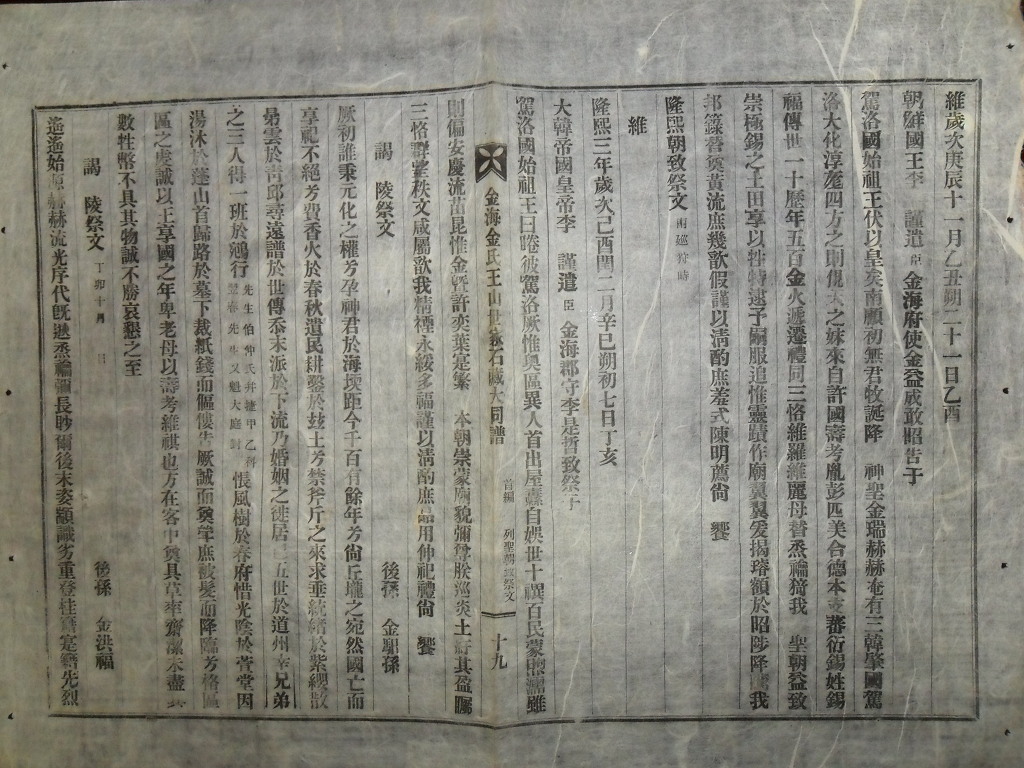 維歲次庚辰十一月乙丑朔二十一日乙酉
朝鮮國王李 謹遣臣金海府使金益成敢昭告于
駕洛國始祖王伏以皇矣南顧初無君牧誕降 神聖金瑞赫赫奄有三韓肇國駕
洛大化淳厖四方之則俔天之妹來自許國壽考胤彭匹美合德本支蕃衍錫姓錫
福傳世一十歷年五百金火遞遷禮同三恪維羅維麗毋替烝禴猗我 聖朝益致
崇極錫之土田享以牲特逮予嗣服追惟靈蹟作廟翼翼爰揭璿額於昭陟降
我
邦籙替
黃流庶幾歆假謹以淸酌庶羞式陳明薦尙 饗
隆熙朝致祭文 南巡狩時
維
隆熙三年歲次己酉閏二月辛巳朔初七日丁亥
大韓帝國皇帝李 謹遣臣金海郡守李是哲致祭于
駕洛國始祖王曰睠彼駕洛厥惟奧區異人首出屋
自娛世十禩百民蒙
濡雖
金海金氏王山世
石藏大同譜
首編 列聖朝
祭文
十九
則偏安慶流苗昆惟金曁許奕葉寔繁 本朝崇
廟貌彌
朕巡炎土
其盈矚
三恪群望秩文咸屬歆我精禋永綏多福謹以淸酌庶品用伸祀禮尙 饗
謁 陵祭文 後孫 金馹孫
厥初誰秉元化之權兮孕神君於海堧距今千百有餘年兮尙丘壠之宛然國亡而
享祀不絕兮費香火於春秋遺民耕鑿於玆土兮禁斧斤之來求垂統緖於紫纓散
昴雲於靑邱尋遠譜於世傳忝末派於下流乃婚姻之徙居
五世於道州
兄弟
之三人得一班於鵷行
悵風樹於春府惜光陰於萱堂因
湯沐於蓬山首歸路於墓下裁紙錢而傴僂告厥誠而奠斝庶被髮而降臨兮格區
區之虔誠以上享國之年卑老母以壽考維祺也方在客中奠具草率齋潔未盡
數牲幣不具其物誠不勝哀懇之至
謁 陵祭文 丁卯十月 日 後孫 金洪福
遙遙始
赫赫流光序代旣遞烝禴彌長眇爾後末姿顓識劣重登桂
寔
先烈